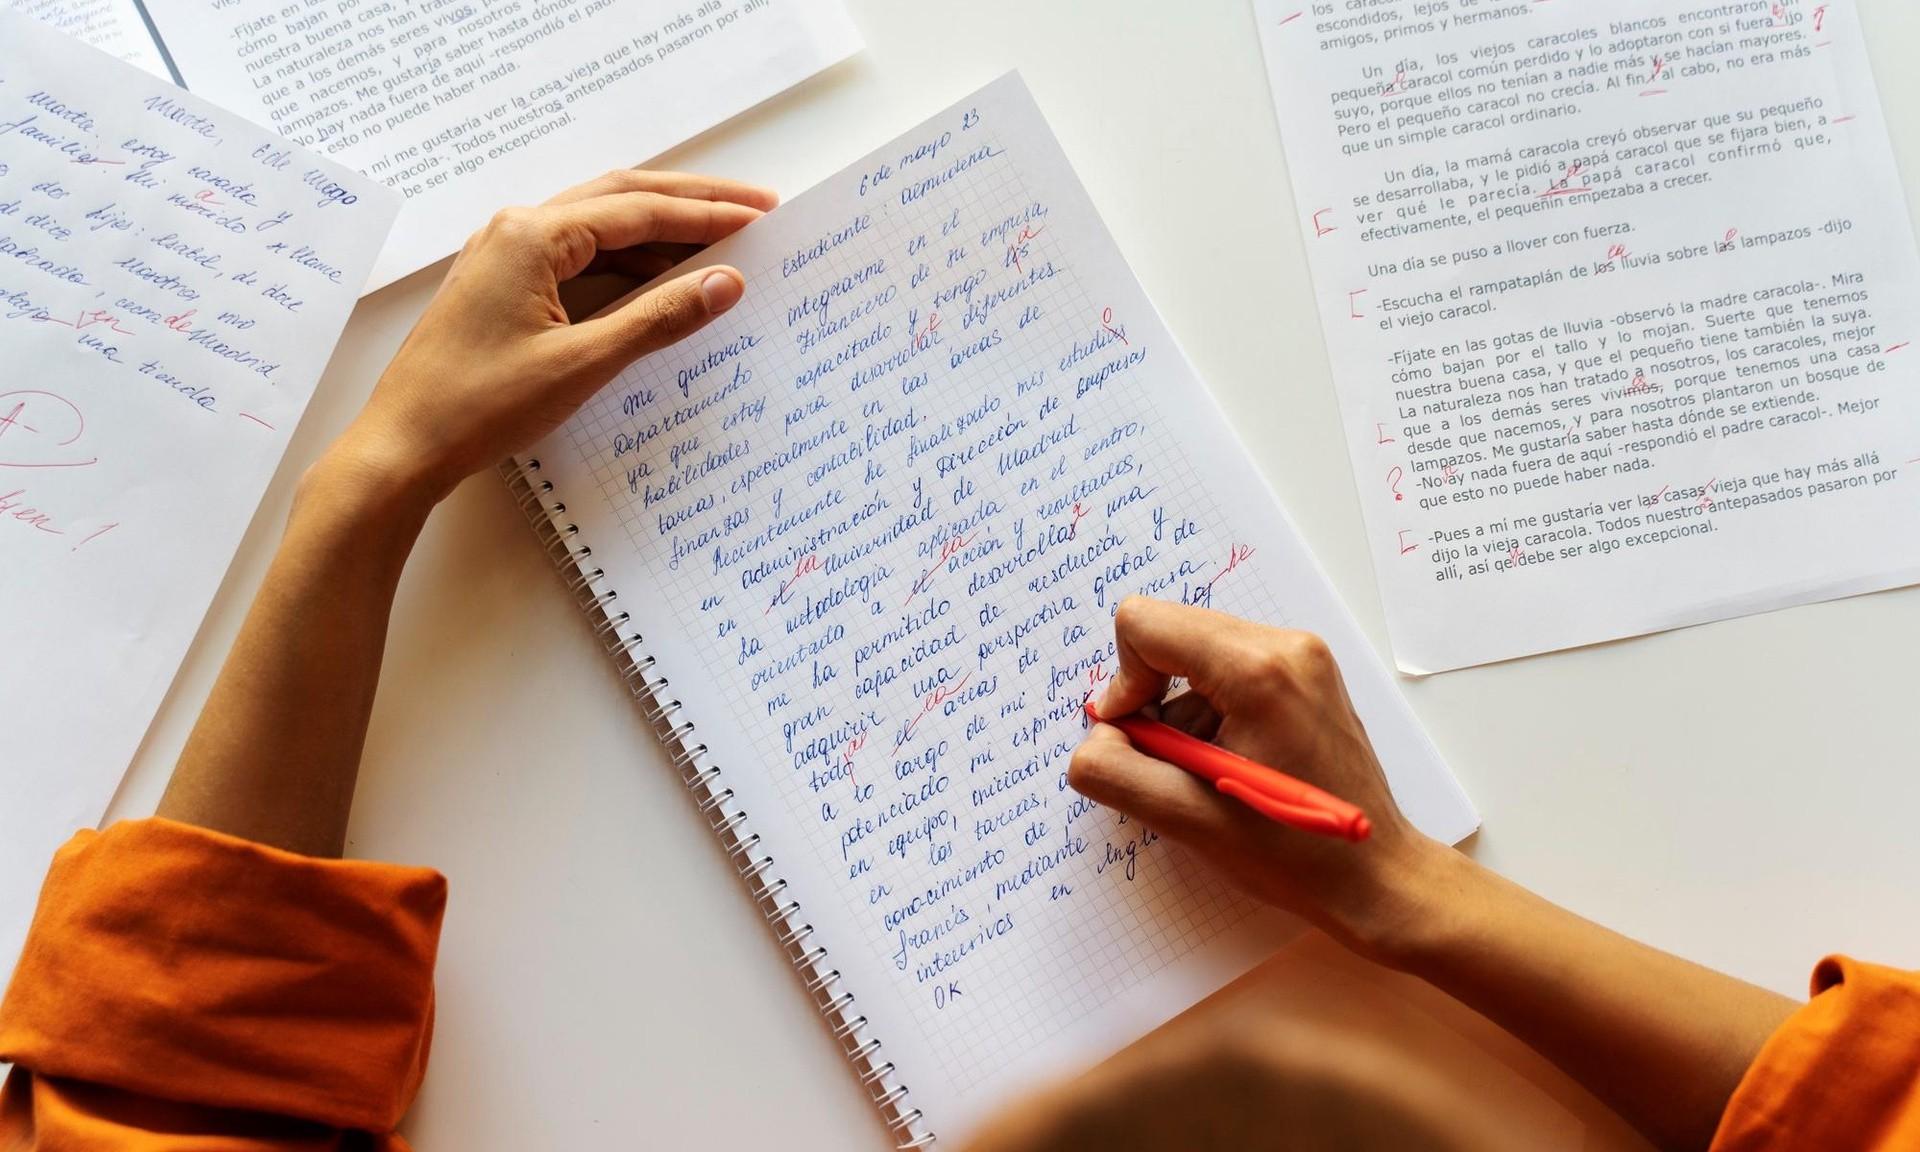 Marta, 6 de mayo
Marta. estoy casada y
familia. Mi merido se llama
a
dos hijes: Isabel, de doce
de diez Nosotros vivo
, cerca de Madrid.
en una tienda
A-
-Fíjate en las
cómo bajan por
nuestra buena casa, y
La naturaleza nos han trat
que a los demás seres vivos,
que nacemos, y para nosotros
lampazos. Me gustaría saber hasta dónde
No hay nada fuera de aquí -respondió el pad
esto no puede haber nada.
a mí me gustaría ver la casa vieja que hay más allá
aracola-. Todos nuestros antepasados pasaron por allí,
be ser algo excepcional.
6 de mayo 23
Estudiante: aemudena
Me gustaria integrarme en el
Departamento Financiero de su empresa,
ya que estoy capacitado y tengo los
a
habilidades para desarrollar diferentes
tareas, especialmente en las áreas de
finanzas y contabilidad.
Recientemente he finalizado mis estudios
o
en administración y Dirección de Empresas
en el Universidad de Madrid
la
La metodología aplicada en el centro,
orientada a el acción y resultados,
la
me ha permitido desarrollas una
r
gran capacidad de resolución y
adquirir una perspectiva global de
todo el areas de la empresa.
as la
a lo largo de mi formac haj
he
potenciado mi espiritu
en equipo, iniciativa
en las tareas, a
conocimiento de idi
francés, mediante
intensivos en Ingl
OK
los carac
escondidos, lejos de
amigos, primos y hermanos.
Un día, los viejos caracoles blancos encontraron un
pequeña caracol común perdido y lo adoptaron con si fuera ijo
suyo, porque ellos no tenían a nadie más y se hacían mayores.
?
Pero el pequeño caracol no crecía. Al fin y al cabo, no era más
que un simple caracol ordinario.
Un día, la mamá caracola creyó observar que su pequeño
se desarrollaba, y le pidió a papá caracol que se fijara bien, a
ver qué le parecía. La papá caracol confirmó que,
efectivamente, el pequeñín empezaba a crecer.
Una día se puso a llover con fuerza.
-Escucha el rampataplán de los lluvia sobre las lampazos -dijo
la
el viejo caracol.
-Fíjate en las gotas de lluvia -observó la madre caracola-. Mira
cómo bajan por el tallo y lo mojan. Suerte que tenemos
nuestra buena casa, y que el pequeño tiene también la suya.
La naturaleza nos han tratado a nosotros, los caracoles, mejor
que a los demás seres vivimos, porque tenemos una casa
desde que nacemos, y para nosotros plantaron un bosque de
lampazos. Me gustaría saber hasta dónde se extiende.
?
-No ay nada fuera de aquí -respondió el padre caracol-. Mejor
que esto no puede haber nada.
-Pues a mí me gustaría ver las casas vieja que hay más allá
dijo la vieja caracola. Todos nuestro antepasados pasaron por
allí, así qe debe ser algo excepcional.